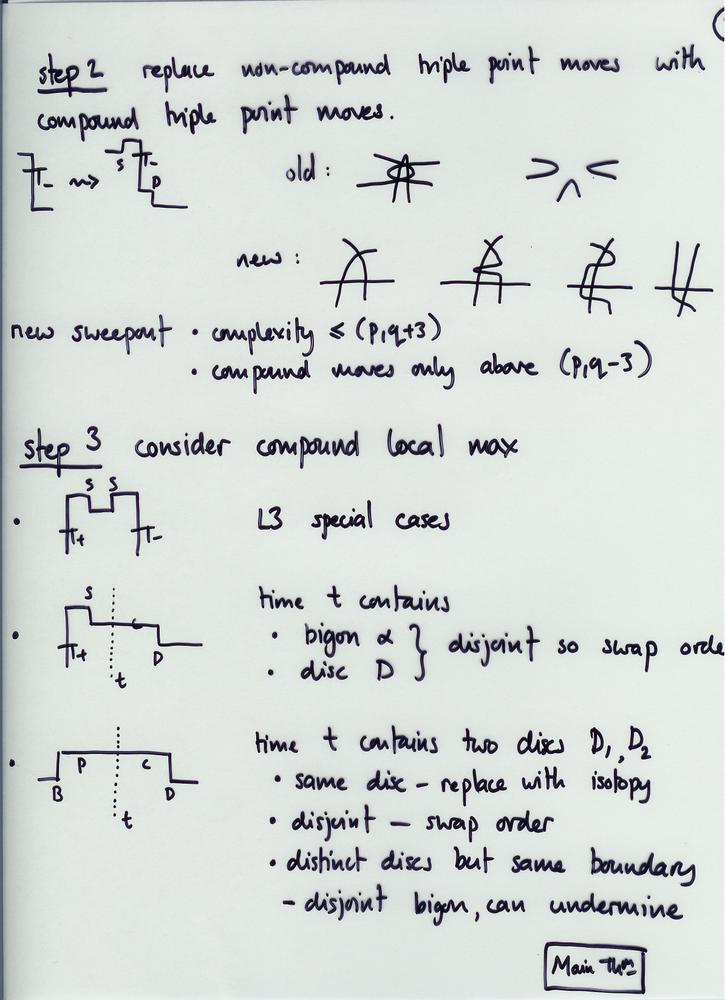 step 2 replace non-compound triple point moves with
compound triple point moves.
T- ~~> S T- D
old :
new :
new sweepout • complexity ≤ (p,q+3)
• compound moves only above (p,q-3)
step 3 consider compound local max
• S S T+ T- 13 special cases
time t contains
• S T+ c D t
• bigon α } disjoint so swap orde
• disc D
time t contains two discs D₁, D₂
• B p c D t
• same disc - replace with isotopy
• disjoint - swap order
• distinct discs but same boundary
- disjoint bigon, can undermine
Main Thm